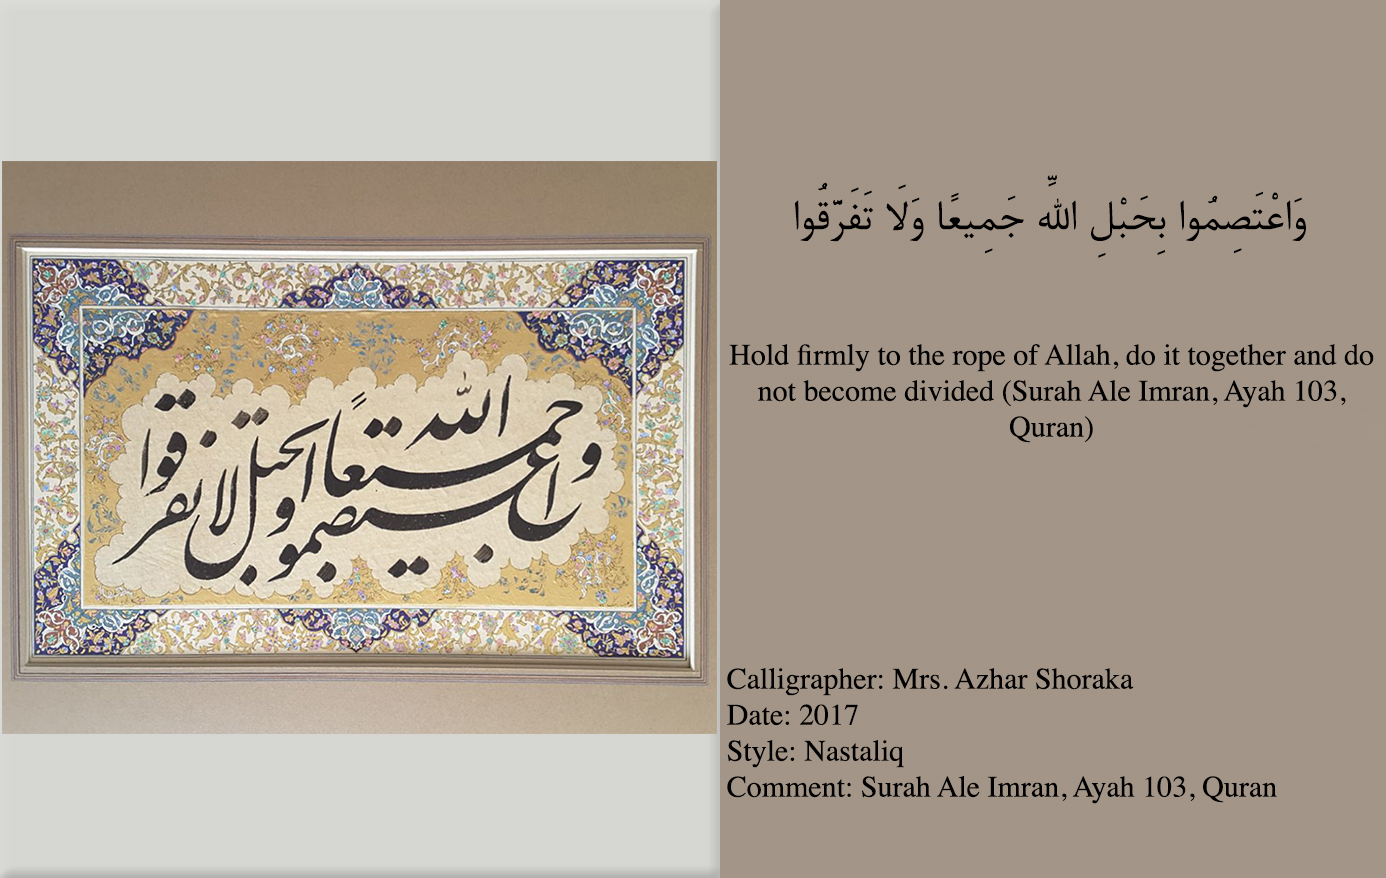 واعتصموا بحبل الله جمیعًا ولا تفرقوا
وَاعْتَصِمُوا بِحَبْلِ اللَّهِ جَمِيعًا وَلَا تَفَرَّقُوا
Hold firmly to the rope of Allah, do it together and do
not become divided (Surah Ale Imran, Ayah 103,
Quran)
Calligrapher: Mrs. Azhar Shoraka
Date: 2017
Style: Nastaliq
Comment: Surah Ale Imran, Ayah 103, Quran